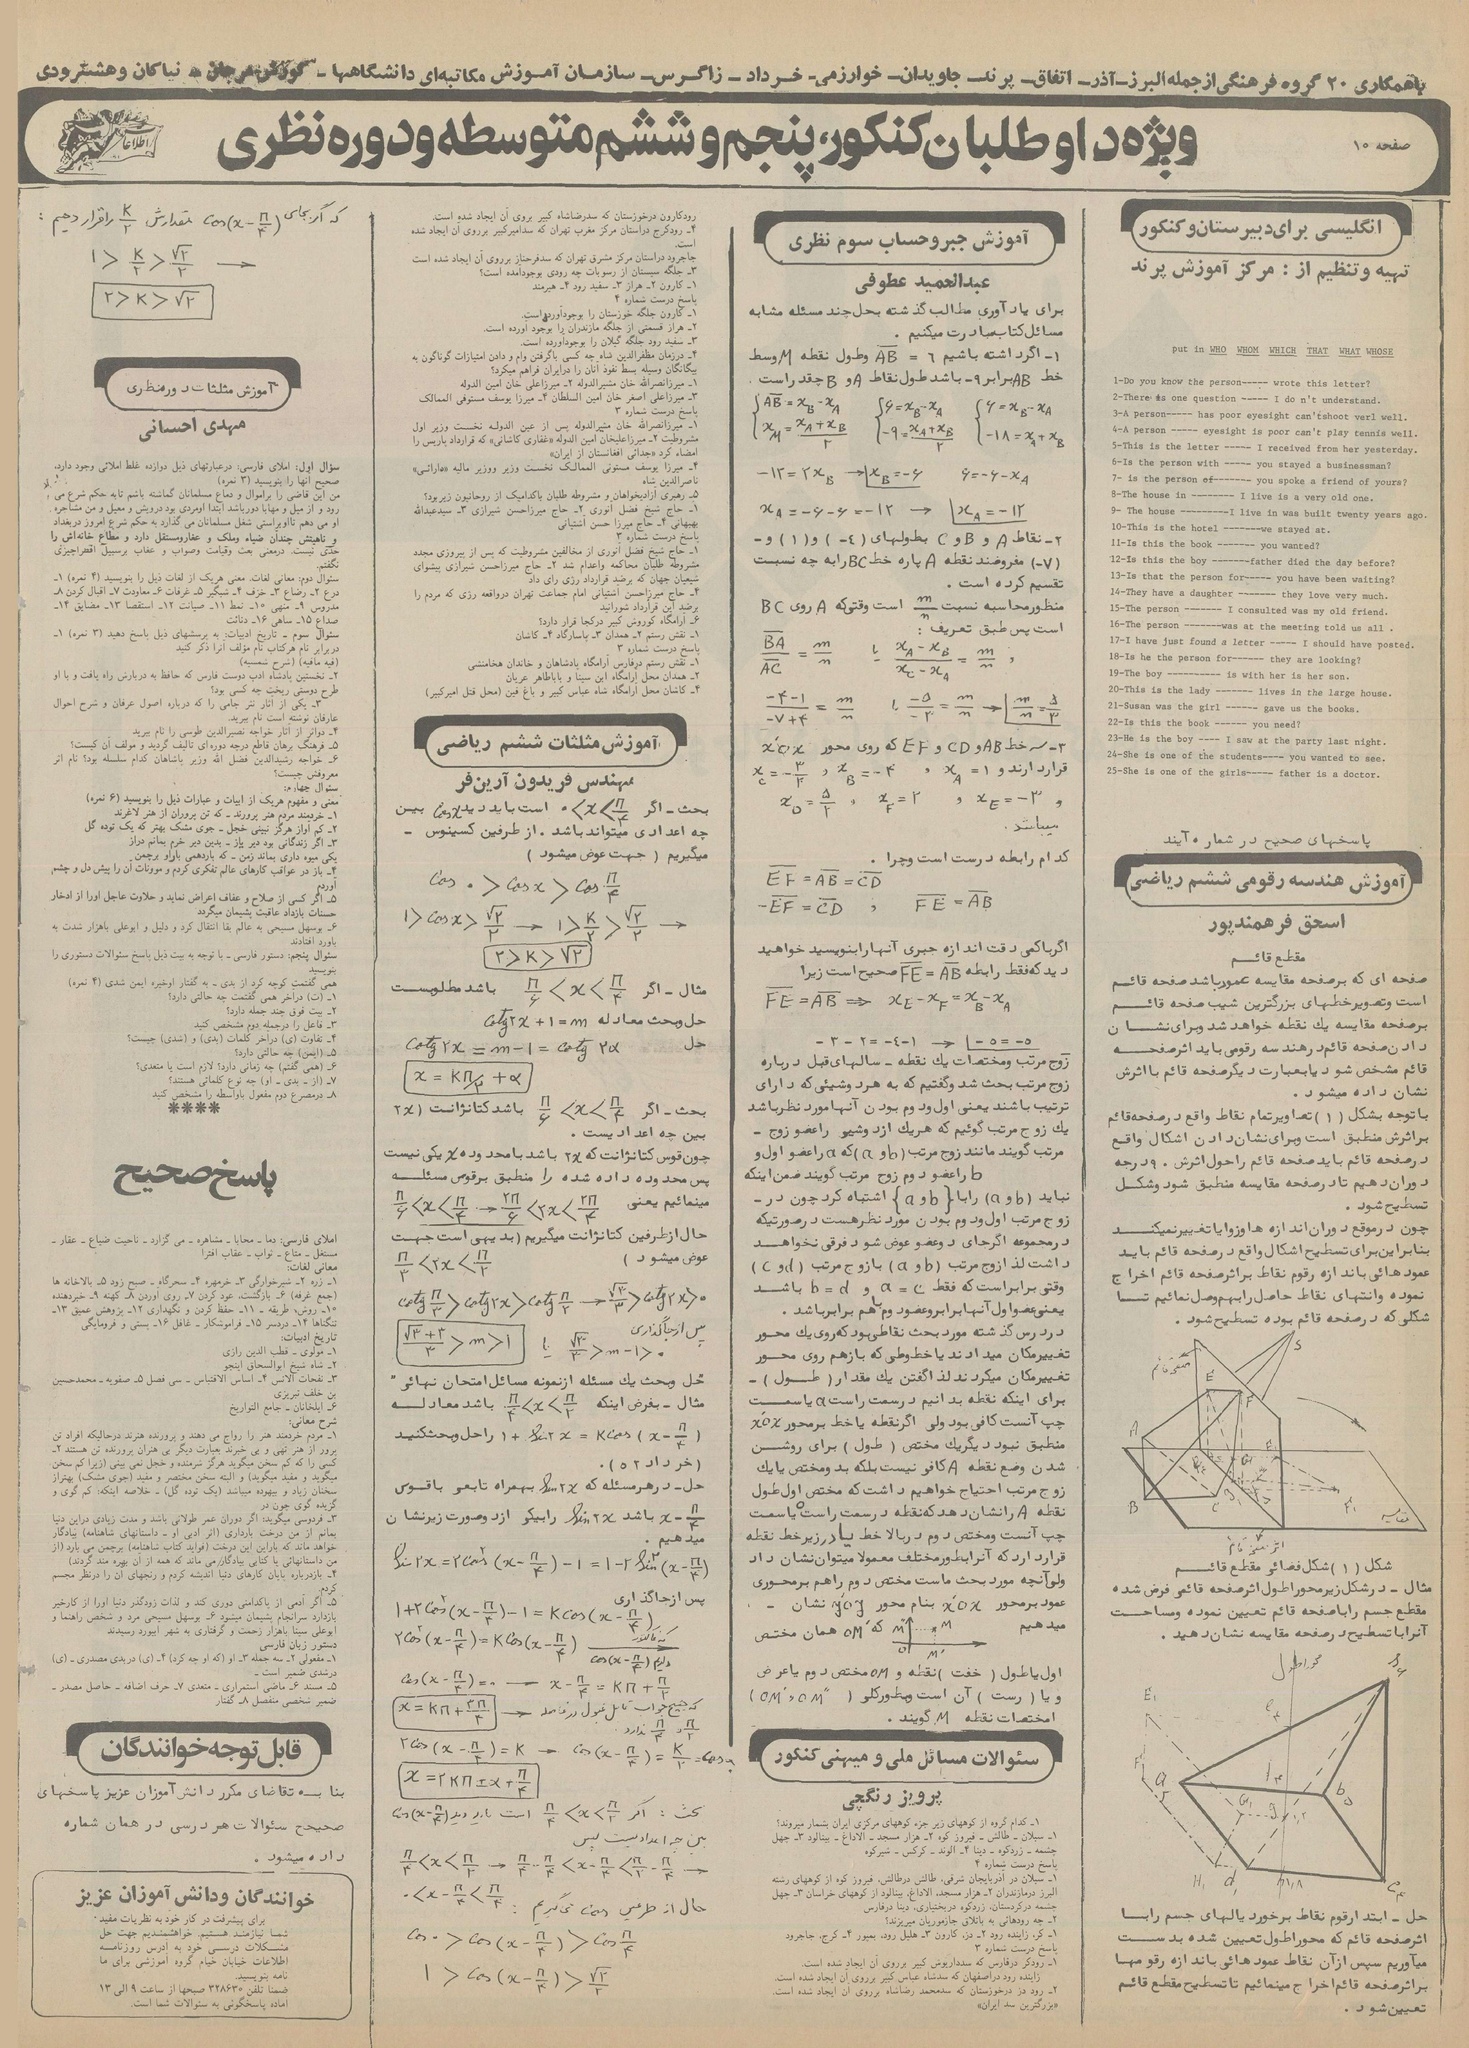 باهمکاری ۲۰ گروه فرهنگی ازجمله البرز-آذر- اتفاق- پرند- جاویدان- خوارزمی- خرداد- زاگرس- سازمان آموزش مکاتبه‌ای دانشگاهها- مرجان- نیاکان وهشترودی
صفحه ۱۰
ویژه داوطلبان کنکور، پنجم وششم متوسطه ودوره نظری
اطلاعات
انگلیسی برای دبیرستان وکنکور
تهیه وتنظیم از : مرکز آموزش پرند
put in WHO WHOM WHICH THAT WHAT WHOSE
1-Do you know the person----- wrote this letter?
2-There is one question ----- I do n't understand.
3-A person----- has poor eyesight can'tshoot verl well.
4-A person ----- eyesight is poor can't play tennis well.
5-This is the letter ----- I received from her yesterday.
6-Is the person with ----- you stayed a businessman?
7- is the person of------- you spoke a friend of yours?
8-The house in -------- I live is a very old one.
9- The house ---------I live in was built twenty years ago.
10-This is the hotel -------we stayed at.
11-Is this the book ------- you wanted?
12-Is this the boy -------father died the day before?
13-Is that the person for----- you have been waiting?
14-They have a daughter ------ they love very much.
15-The person ------- I consulted was my old friend.
16-The person -------was at the meeting told us all .
17-I have just found a letter ----- I should have posted.
18-Is he the person for------ they are looking?
19-The boy ---------- is with her is her son.
20-This is the lady ------ lives in the large house.
21-Susan was the girl ------ gave us the books.
22-Is this the book ------ you need?
23-He is the boy ---- I saw at the party last night.
24-She is one of the students---- you wanted to see.
25-She is one of the girls----- father is a doctor.
پاسخهای صحیح در شماره آیند
آموزش هندسه رقومی ششم ریاضی
اسحق فرهمندپور
مقطع قائم
صفحه ای که برصفحه مقایسه عمود باشد صفحه قائم
است وتصویرخطهای بزرگترین شیب صفحه قائم
برصفحه مقایسه یك نقطه خواهد شد وبرای نشان
دادن صفحه قائم در هندسه رقومی باید اثرصفحه
قائم مشخص شود یا بعبارت دیگر صفحه قائم با اثرش
نشان داده میشود .
باتوجه بشکل (۱) تصاویر تمام نقاط واقع در صفحه قائم
براثرش منطبق است وبرای نشان دادن اشکال واقع
در صفحه قائم باید صفحه قائم راحول اثرش ۹۰ درجه
دوران دهیم تا در صفحه مقایسه منطبق شود وشکل
تسطیح شود .
چون در موقع دوران اندازه ها وزوایا تغییر نمیکند
بنابراین برای تسطیح اشکال واقع در صفحه قائم باید
عمودهائی باندازه رقوم نقاط براثر صفحه قائم اخراج
نموده وانتهای نقاط حاصل رابهم وصل نمائیم تا
شکلی که در صفحه قائم بوده تسطیح شود .
شکل (۱) شکل فضائی مقطع قائم
مثال - در شکل زیر محور اطول اثر صفحه قائمی فرض شده
مقطع جسم را باصفحه قائم تعیین نموده ومساحت
آنرا با تسطیح در صفحه مقایسه نشان دهید .
حل - ابتدا رقوم نقاط برخورد یالهای جسم را با
اثر صفحه قائم که محور اطول تعیین شده بدست
میآوریم سپس از آن نقاط عمودهائی باندازه رقومها
براثر صفحه قائم اخراج مینمائیم تا تسطیح مقطع قائم
تعیین شود .
آموزش جبر وحساب سوم نظری
عبدالحمید عطوفی
برای یادآوری مطالب گذشته بحل چند مسئله مشابه
مسائل کتاب مبادرت میکنیم .
۱- اگر داشته باشیم AB = ۶ وطول نقطه M وسط
خط AB برابر ۹- باشد طول نقاط A و B چقدر است .
۲- نقاط A و B و C بطولهای (۴-) و (۱) و -
(۷-) مفروضند نقطه A پاره خط BC رابه چه نسبت
تقسیم کرده است .
منظور محاسبه نسبت m/n است وقتی که A روی BC
است پس طبق تعریف :
۳- سه خط AB و CD و EF که روی محور x'ox
قرار دارند و x_A = ۱ , x_B = -۴ , x_C = -۳/۲
و x_E = -۳ , x_F = ۲ , x_D = ۵/۲
میباشد .
کدام رابطه درست است وچرا .
EF = AB = CD
-EF = CD , FE = AB
اگر باکمی دقت اندازه جبری آنها رابنویسید خواهید
دید که فقط رابطه FE = AB صحیح است زیرا
FE = AB ⟹ x_E - x_F = x_B - x_A
-۳-۲ = -۴-۱ → -۵ = -۵
زوج مرتب ومختصات یك نقطه - سالهای قبل درباره
زوج مرتب بحث شد وگفتیم که به هر دوشیئی که دارای
ترتیب باشند یعنی اول ودوم بودن آنها مورد نظر باشد
یك زوج مرتب گوئیم که هریك از دوشیی را عضو زوج -
مرتب گویند مانند زوج مرتب (a و b) که a را عضو اول و
b را عضو دوم زوج مرتب گویند ضمن اینکه
نباید (a و b) رابا {a و b} اشتباه کرد چون در -
زوج مرتب اول ودوم بودن مورد نظر هست در صورتیکه
در مجموعه اگر جای دو عضو عوض شود فرقی نخواهد
داشت لذا زوج مرتب (a و b) با زوج مرتب (c و d)
وقتی برابر است که فقط a = c و b = d باشد
یعنی عضو اول آنها برابر وعضو دوم باهم برابر باشد .
در درس گذشته مورد بحث نقاطی بود که روی یك محور
تغییرمکان میدادند یا خطوطی که باز هم روی محور
تغییرمکان میکردند لذا گفتن یك مقدار (طول) -
برای اینکه نقطه بدانیم در سمت راست o یا سمت
چپ آنست کافی بود ولی اگر نقطه یا خط بر محور x'ox
منطبق نبود دیگر یك مختص (طول) برای روشن
شدن وضع نقطه A کافی نیست بلکه بدو مختص یا یك
زوج مرتب احتیاج خواهیم داشت که مختص اول طول
نقطه A رانشان دهد که نقطه در سمت راست یا سمت
چپ آنست ومختص دوم در بالا خط یا در زیر خط نقطه
قرار دارد که آنرا بطور مختلف معمولا میتوان نشان داد
ولی آنچه مورد بحث ماست مختص دوم راهم بر محوری
عمود بر محور x'ox بنام محور y'oy نشان -
میدهیم که OM' همان مختص
اول یا طول (خفت) نقطه و OM'' مختص دوم یا عرض
و یا (رست) آن است وبطورکلی (OM' , OM'')
را مختصات نقطه M گویند .
سئوالات مسائل ملی و میهنی کنکور
پرویز رنگچی
۱ـ کدام گروه از کوههای زیر جزء کوههای مرکزی ایران بشمار میروند؟
۱ـ سبلان ـ طالش ـ فیروز کوه ۲ـ هزار مسجد ـ الاداغ ـ بینالود ۳ـ چهل
چشمه ـ زردکوه ـ دینا ۴ـ الوند ـ کرکس ـ شیرکوه
پاسخ درست شماره ۴
۱ـ سبلان در آذربایجان شرقی، طالش درطالش، فیروز کوه از کوههای رشته
البرز درمازندران ۲ـ هزار مسجد، الاداغ، بینالود از کوههای خراسان ۳ـ چهل
چشمه درکردستان، زردکوه دربختیاری، دینا درفارس
۲ـ چه رودهائی به باتلاق جازموریان میریزند؟
۱ـ کر، زاینده رود ۲ـ دز، کارون ۳ـ هلیل رود، بمپور ۴ـ کرج، جاجرود
پاسخ درست شماره ۳
۱ـ رودکر درفارس که سدداریوش کبیر برروی آن ایجاد شده است.
زاینده رود دراصفهان که سدشاه عباس کبیر برروی آن ایجاد شده است.
۲ـ رود دز درخوزستان که سدمحمد رضاشاه برروی آن ایجاد شده است.
«بزرگترین سد ایران»
رودکارون درخوزستان که سدرضاشاه کبیر بروی آن ایجاد شده است.
۴ـ رودکرج دراستان مرکز مغرب تهران که سدامیرکبیر برروی آن ایجاد شده
است.
جاجرود دراستان مرکز مشرق تهران که سدفرحناز برروی آن ایجاد شده است
۳ـ جلگه سیستان از رسوبات چه رودی بوجودآمده است؟
۱ـ کارون ۲ـ هراز ۳ـ سفید رود ۴ـ هیرمند
پاسخ درست شماره ۴
۱ـ کارون جلگه خوزستان را بوجودآورده است.
۲ـ هراز قسمتی از جلگه مازندران را بوجود آورده است.
۳ـ سفید رود جلگه گیلان را بوجودآورده است.
۴ـ درزمان مظفرالدین شاه چه کسی باگرفتن وام و دادن امتیازات گوناگون به
بیگانگان وسیله بسط نفوذ آنان را درایران فراهم میکرد؟
۱ـ میرزانصرالله خان مشیرالدوله ۲ـ میرزاعلی خان امین الدوله
۳ـ میرزاعلی اصغر خان امین السلطان ۴ـ میرزا یوسف مستوفی الممالک
پاسخ درست شماره ۳
۱ـ میرزانصرالله خان مشیرالدوله پس از عین الدوله نخست وزیر اول
امضاء کرد «جدائی افغانستان از ایران»
ناصرالدین شاه
۵ـ رهبری آزادیخواهان و مشروطه طلبان باکدامیک از روحانیون زیربود؟
۱ـ حاج شیخ فضل الله نوری ۲ـ حاج میرزاحسن شیرازی ۳ـ سیدعبدالله
بهبهانی ۴ـ حاج میرزا حسن آشتیانی
پاسخ درست شماره ۳
مشروطه طلبان محاکمه واعدام شد ۲ـ حاج میرزاحسن شیرازی پیشوای
شیعیان جهان که برضد قرارداد رژی رای داد
۴ـ حاج میرزاحسن آشتیانی امام جماعت تهران درواقعه رژی که مردم را
برضد این قرارداد شورانید
۶ـ آرامگاه کوروش کبیر درکجا قرار دارد؟
۱ـ نقش رستم ۲ـ همدان ۳ـ پاسارگاد ۴ـ کاشان
پاسخ درست شماره ۳
۱ـ نقش رستم درفارس آرامگاه پادشاهان و خاندان هخامنشی
۲ـ همدان محل آرامگاه ابن سینا و باباطاهر عریان
۴ـ کاشان محل آرامگاه شاه عباس کبیر و باغ فین (محل قتل امیرکبیر)
آموزش مثلثات ششم ریاضی
مهندس فریدون آرین‌فر
بحث - اگر ۰ < x < π/۴ است باید دید cos x بین
چه اعدادی میتواند باشد . از طرفین کسینوس -
میگیریم (جهت عوض میشود)
cos ۰ > cos x > cos π/۴
۱ > cos x > √۲/۲ → ۱ > K/۲ > √۲/۲ →
۲ > K > √۲
مثال - اگر π/۶ < x < π/۴ باشد مطلوبست
حل وبحث معادله cotg ۲x + ۱ = m
حل cotg ۲x = m - ۱ = cotg ۲α
x = Kπ/۲ + α
بحث - اگر π/۶ < x < π/۴ باشد کتانژانت (۲x
بین چه اعدادیست .
چون قوس کتانژانت که ۲x باشد با محدوده x یکی نیست
پس محدوده داده شده را منطبق برقوس مسئله
مینمائیم یعنی π/۶ < x < π/۴ → ۲π/۶ < ۲x < ۲π/۴
حال از طرفین کتانژانت میگیریم (بدیهی است جهت
عوض میشود) π/۳ < ۲x < π/۲
cotg π/۳ > cotg ۲x > cotg π/۲ → √۳/۳ > cotg ۲x > ۰
پس از جاگذاری
√۳/۳ > m - ۱ > ۰ یا (√۳+۳)/۳ > m > ۱
حل وبحث یك مسئله از نمونه مسائل امتحان نهائی
مثال - بفرض اینکه π/۴ < x < π/۲ باشد معادله
۱ + sin ۲x = K cos(x - π/۴) را حل وبحث کنید
(خرداد ۵۲) .
حل - در هر مسئله که sin ۲x بهمراه تابعی باقوس
x - π/۴ باشد sin ۲x رابیکی از دو صورت زیر نشان
میدهیم .
sin ۲x = ۲cos²(x - π/۴) - ۱ = ۱ - ۲sin²(x - π/۴)
پس از جاگذاری
۱ + ۲cos²(x - π/۴) - ۱ = K cos(x - π/۴)
۲cos²(x - π/۴) = K cos(x - π/۴)
cos(x - π/۴) = ۰ → x - π/۴ = Kπ + π/۲
x = Kπ + ۳π/۴
۲cos(x - π/۴) = K → cos(x - π/۴) = K/۲ = cos α
x = ۲Kπ ± α + π/۴
بحث : اگر π/۴ < x < π/۲ است باید دید cos(x - π/۴)
بین چه اعدادیست پس
π/۴ < x < π/۲ → π/۴ - π/۴ < x - π/۴ < π/۲ - π/۴ →
۰ < x - π/۴ < π/۴
حال از طرفین cos میگیریم :
cos ۰ > cos(x - π/۴) > cos π/۴
۱ > cos(x - π/۴) > √۲/۲
که اگر بجای cos(x - π/۴) مقدارش K/۲ را قرار دهیم :
→ ۱ > K/۲ > √۲/۲
۲ > K > √۲
آموزش مثلثات دوره نظری
مهدی احسانی
سؤال اول: املای فارسی: درعبارتهای ذیل دوازده غلط املائی وجود دارد.
صحیح آنها را بنویسید (۳ نمره)
من این قاضی را براموال و دماع مسلمانان گماشته باشم تابه حکم شرع می
او می دهم تااوبراستی شغل مسلمانان می گذارد به حکم شرع امروز دربغداد
سئوال دوم: معانی لغات. معنی هریک از لغات ذیل را بنویسید (۴ نمره) ۱ـ
درع ۲ـ رضاع ۳ـ خزف ۴ـ شبگیر ۵ـ غرفات ۶ـ معاودت ۷ـ اقبال کردن ۸ـ
مدروس ۹ـ منهی ۱۰ـ نمط ۱۱ـ صیانت ۱۲ـ استقصا ۱۳ـ مضایق ۱۴ـ
صداع ۱۵ـ ساهی ۱۶ـ دنائت
سئوال سوم ـ تاریخ ادبیات: به پرسشهای ذیل پاسخ دهید (۳ نمره) ۱ـ
دربرابر نام هرکتاب نام مؤلف آنرا ذکر کنید
(فیه مافیه) (شرح شمسیه)
۲ـ نخستین پادشاه ادب دوست فارس که حافظ به دربارش راه یافت و با او
طرح دوستی ریخت چه کسی بود؟
۳ـ یکی از آثار نثر جامی را که درباره اصول عرفان و شرح احوال
عارفان نوشته است نام ببرید.
۴ـ دواثر از آثار خواجه نصیرالدین طوسی را نام ببرید
۵ـ فرهنگ برهان قاطع درچه دوره‌ای تالیف گردید و مولف آن کیست؟
۶ـ خواجه رشیدالدین فضل الله وزیر باشاهان کدام سلسله بود؟ نام اثر
معروفش چیست؟
سئوال چهارم:
معنی و مفهوم هریک از ابیات و عبارات ذیل را بنویسید (۶ نمره)
۱ـ خردمند مردم هنر پرورند ـ که تن پروران از هنر لاغرند
۲ـ کم آواز هرگز نبینی خجل ـ جوی مشک بهتر که یک توده گل
۳ـ اگر زندگانی بود دیر باز ـ بدین دیر خرم بمانم دراز
یکی میوه داری بماند زمن ـ که باردهمی باراو برچمن
۴ـ باز در عواقب کارهای عالم تفکری کردم و موونات آن را پیش دل و چشم
آوردم
۵ـ اگر کسی از صلاح و عفاف اعراض نماید و حلاوت عاجل اورا از ادخار
حسنات بازداد عاقبت پشیمان میگردد
۶ـ بوسهل مسبحی به عالم بقا انتقال کرد و دلیل و ابوعلی باهزار شدت به
باورد افتادند
سئوال پنجم: دستور فارسی ـ با توجه به بیت ذیل پاسخ سئوالات دستوری را
بنویسید
همی گفتمت کوچه کرد از بدی ـ به گفتار اوخیره ایمن شدی (۴ نمره)
۱ـ (ت) درآخر همی گفتمت چه حالتی دارد؟
۲ـ بیت فوق چند جمله دارد؟
۳ـ فاعل را درجمله دوم مشخص کنید
۴ـ تفاوت (ی) درآخر کلمات (بدی) و (شدی) چیست؟
۵ـ (ایمن) چه حالتی دارد؟
۶ـ (همی گفتم) چه زمانی دارد؟ لازم است یا متعدی؟
۷ـ (از ـ بدی ـ او) چه نوع کلماتی هستند؟
۸ـ درمصرع دوم مفعول باواسطه را مشخص کنید
****
پاسخ صحیح
املای فارسی: دما ـ محابا ـ مشاهره ـ می گزارد ـ ناحیت ضیاع ـ عقار ـ
مستغل ـ متاع ـ ثواب ـ عقاب افترا
معانی لغات:
۱ـ زره ۲ـ شیرخوارگی ۳ـ خرمهره ۴ـ سحرگاه ـ صبح زود ۵ـ بالاخانه ها
(جمع غرفه) ۶ـ بازگشت، عود کردن ۷ـ روی آوردن ۸ـ کهنه ۹ـ خبردهنده
۱۰ـ روش، طریقه ـ ۱۱ـ حفظ کردن و نگهداری ۱۲ـ پژوهش عمیق ۱۳ـ
تنگناها ۱۴ـ دردسر ۱۵ـ فراموشکار ـ غافل ۱۶ـ پستی و فرومایگی
تاریخ ادبیات:
۱ـ مولوی ـ قطب الدین رازی
۲ـ شاه شیخ ابواسحاق اینجو
۳ـ نفحات الانس ۴ـ اساس الاقتباس ـ سی فصل ۵ـ صفویه ـ محمدحسین
بن خلف تبریزی
۶ـ ایلخانان ـ جامع التواریخ
شرح معانی:
۱ـ مردم خردمند هنر را رواج می دهند و پرورنده هنرند درحالیکه افراد تن
پرور از هنر تهی و بی خبرند بعبارت دیگر بی هنران پرورنده تن هستند ۲ـ
کسی را که کم سخن میگوید هرگز شرمنده و خجل نمی بینی (زیرا کم سخن
میگوید و مفید میگوید) و البته سخن مختصر و مفید (جوی مشک) بهتراز
سخنان زیاد و بیهوده میباشد (یک توده گل) ـ خلاصه اینکه: کم گوی و
گزیده گوی چون در
۳ـ فردوسی میگوید: اگر دوران عمر طولانی باشد و مدت زیادی دراین دنیا
بمانم از من درخت بارداری (اثر ادبی او ـ داستانهای شاهنامه) بیادگار
خواهد ماند که باراین این درخت (فواید کتاب شاهنامه) برچمن می بارد (از
من داستانهائی یا کتابی بیادگار می ماند که همه از آن بهره مند گردند)
۴ـ بازدرباره پایان کارهای دنیا اندیشه کردم و رنجهای آن را درنظر مجسم
کردم
۵ـ اگر آدمی از پاکدامنی دوری کند و لذات زودگذر دنیا اورا از کارخیر
بازدارد سرانجام پشیمان میشود ۶ـ بوسهل مسیحی مرد و شخص راهنما و
ابوعلی سینا باهزار زحمت و گرفتاری به شهر ابیورد رسیدند
دستور زبان فارسی
۱ـ مفعولی ۲ـ سه جمله ۳ـ او (که او چه کرد) ۴ـ (ی) دربدی مصدری ـ (ی)
درشدی ضمیر است ـ
۵ـ مسند ۶ـ ماضی استمراری ـ متعدی ۷ـ حرف اضافه ـ حاصل مصدر ـ
ضمیر شخصی منفصل ۸ـ گفتار
قابل توجه خوانندگان
بنا بـه تقاضای مکرر دانش آموزان عزیز پاسخهای
صحیح سئوالات هر درسی در همان شماره
داده میشود .
خوانندگان ودانش آموزان عزیز
برای پیشرفت در کار خود به نظریات مفید
شما نیازمند هستیم. خواهشمندیم جهت حل
مشکلات درسی خود به آدرس روزنامه
اطلاعات خیابان خیام گروه آموزشی برای ما
نامه بنویسید.
ضمنا تلفن ۳۲۸۶۳۰ صبحها از ساعت ۹ الی ۱۳
آماده پاسخگوئی به سئوالات شما است.